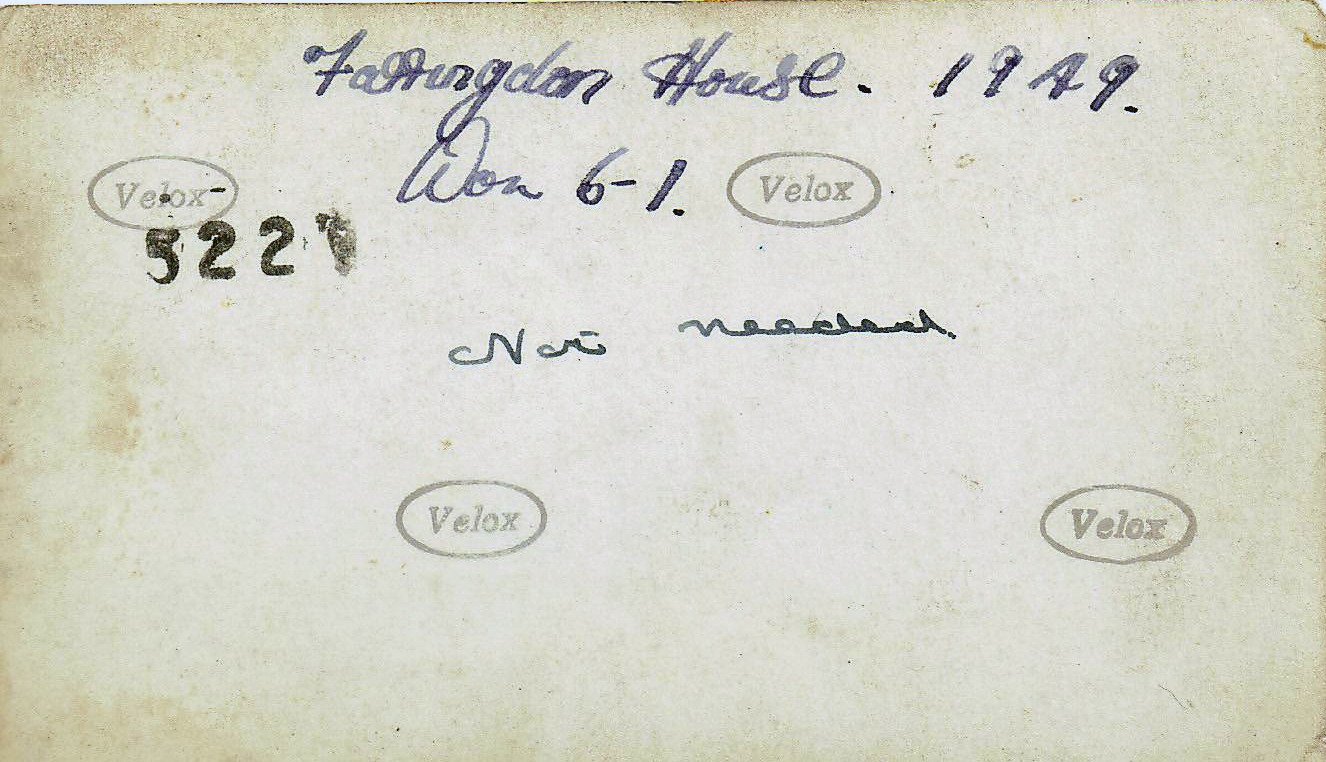 Farringdon House. 1949.
Won 6-1.
Velox Velox
522
Not needed.
Velox Velox